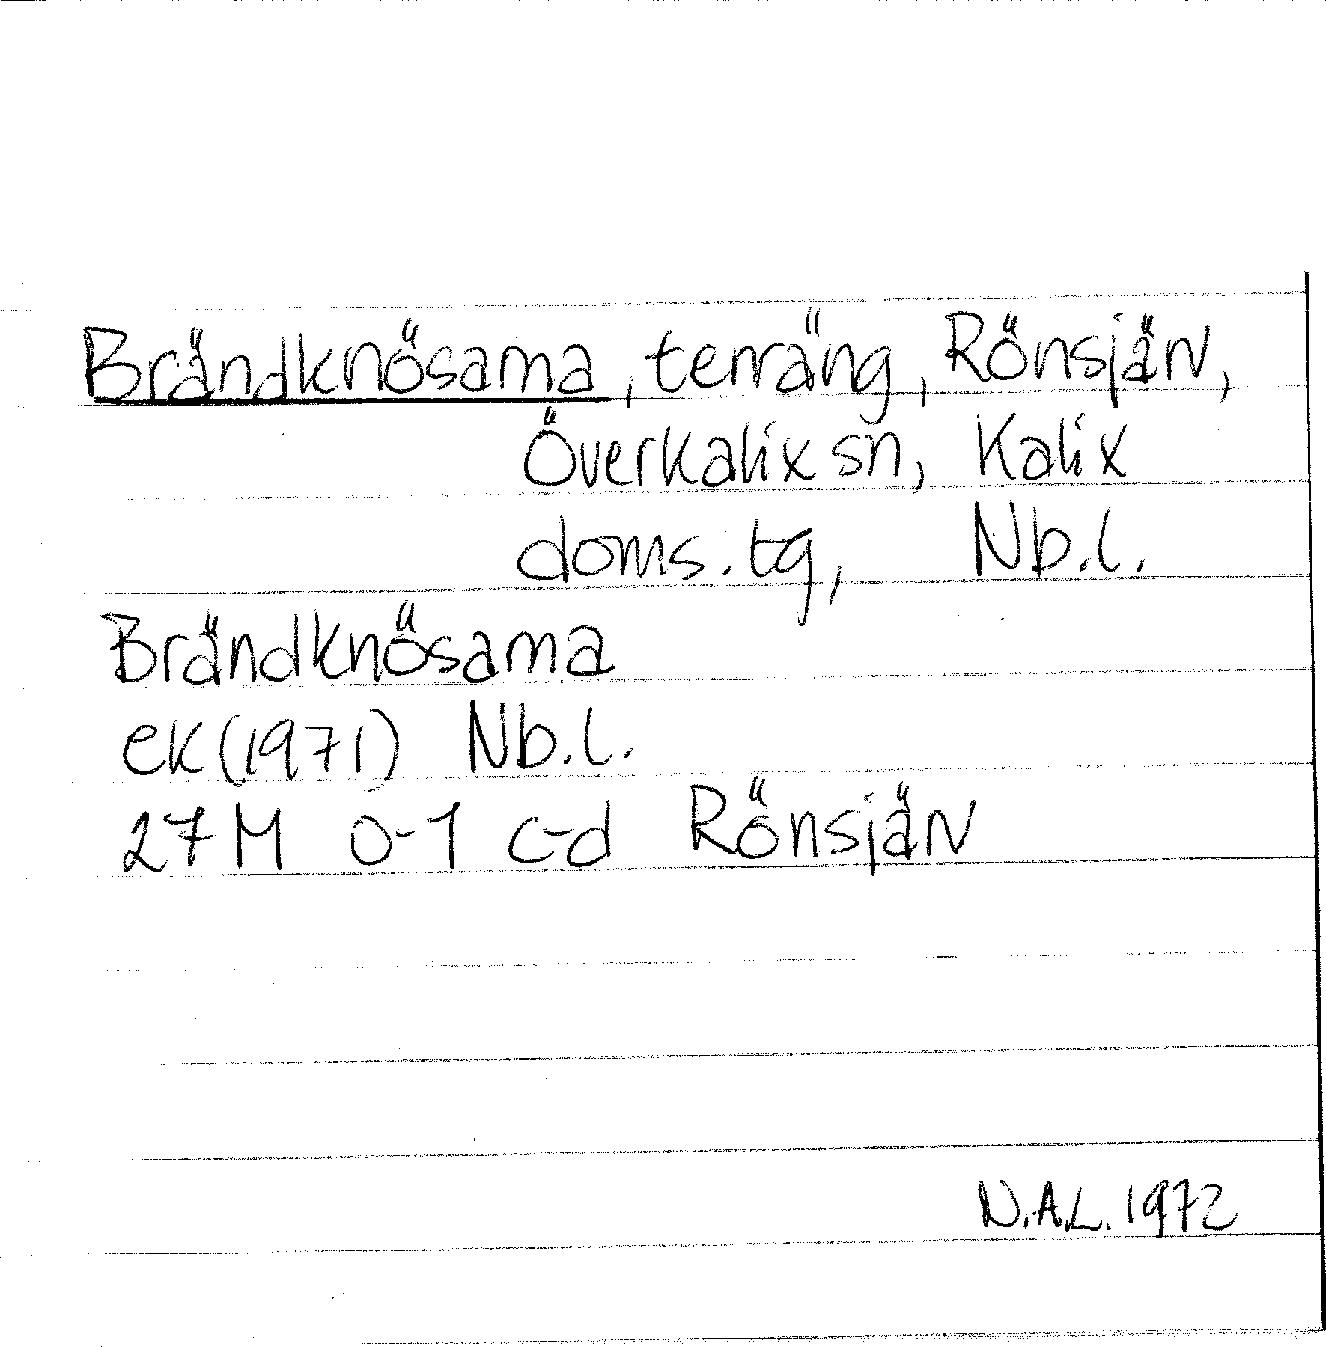 Brändknösama, terräng, Rönsjärv,
Överkalix sn, Kalix
doms.tg, Nb.l.
Brändknösama
ek (1971) Nb.l.
27M 0-1 c-d Rönsjärv
N.A.L. 1972